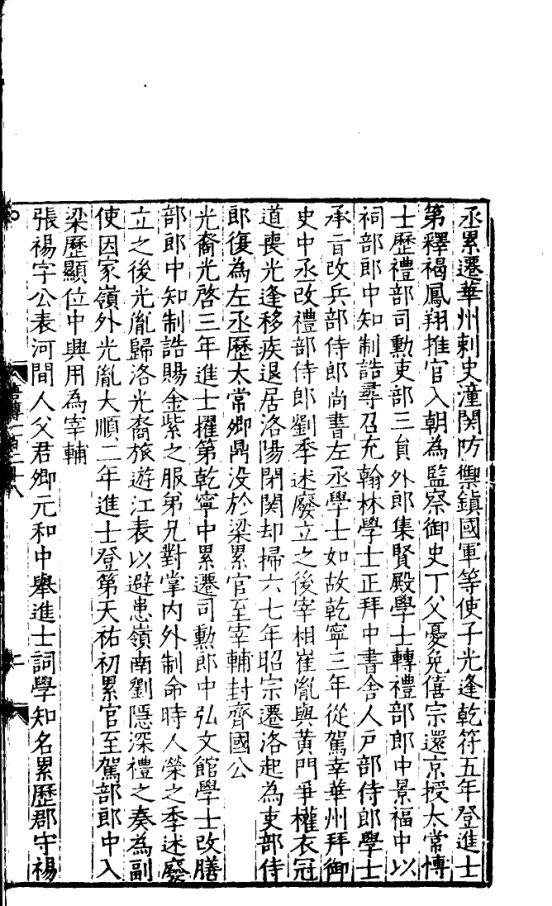 丞累遷華州刺史潼関防禦鎮國軍等使子光逢乾符五年登進士
第釋褐鳳翔推官入朝為監察御史丁父憂免僖宗還京授太常博
士歷禮部司勳吏部三員外郎集賢殿學士轉禮部郎中景福中以
祠部郎中知制誥尋召充翰林學士正拜中書舍人戸部侍郎學士
承旨改兵部侍郎尚書左丞學士如故乾寧三年從駕幸華州拜御
史中丞改禮部侍郎劉季述廢立之後宰相崔胤與黃門爭權衣冠
道喪光逢移疾退居洛陽閉関却掃六七年昭宗遷洛起為吏部侍
郎復為左丞歷太常卿鼎没於梁累官至宰輔封齊國公
光裔光啓三年進士擢第乾寧中累遷司勳郎中弘文館學士改膳
部郎中知制誥賜金紫之服弟兄對掌内外制命時人榮之季述廢
立之後光胤歸洛光裔旅遊江表以避患嶺南劉隱深禮之奏為副
使因家嶺外光胤大順二年進士登第天祐初累官至駕部郎中入
梁歷顯位中興用為宰輔
張裼字公表河間人父君卿元和中舉進士詞學知名累歷郡守裼